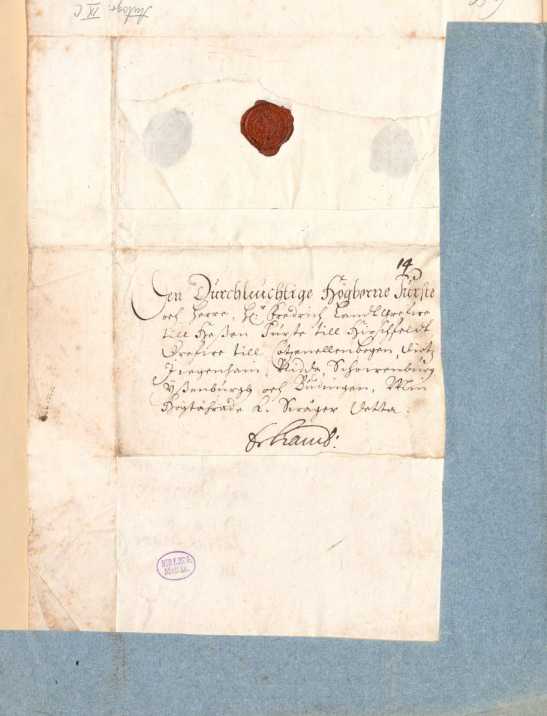 Autogr. IX C
14
Den Durchleuchtige Högborne Furste
och Herre, Hr: Fredrich Landtgrefwe
till Heßen Furste till Hirschfeldt
Grefwe till Catzenellenbogen, Dietz
Ziegenhain, Nidda, Schowenburg
Ysenburgh och Büdingen, Min
Högtährade k. Swåger Detta